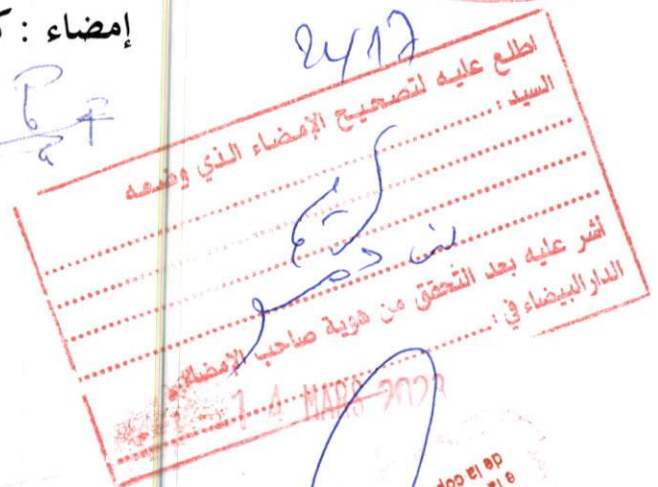 إمضاء :
2417
اطلع عليه لتصحيح الإمضاء الذي وضعه
السيد :
كريم
بن دحمو
أشر عليه بعد التحقق من هوية صاحب الإمضاء
الدار البيضاء في :
14 MARS 2022
de la cop